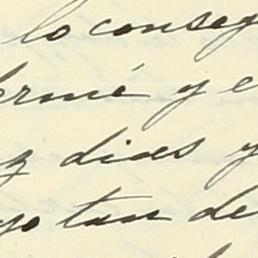 lo conseg
ermé y e
z dias y
go tan de